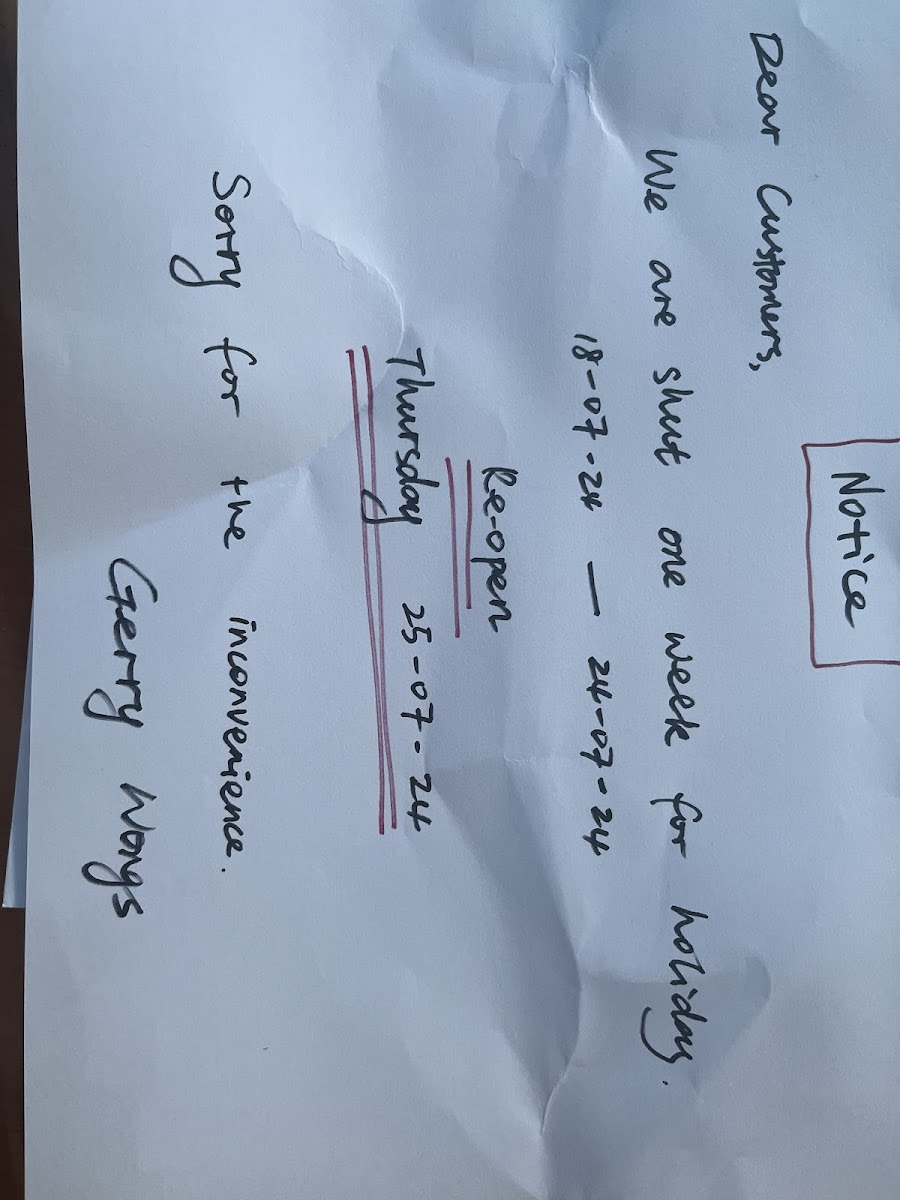 Notice
Dear Customers,
We are shut one week for holiday.
18-07-24 — 24-07-24
Re-open
Thursday 25-07-24
Sorry for the inconvenience.
Gerry Wongs